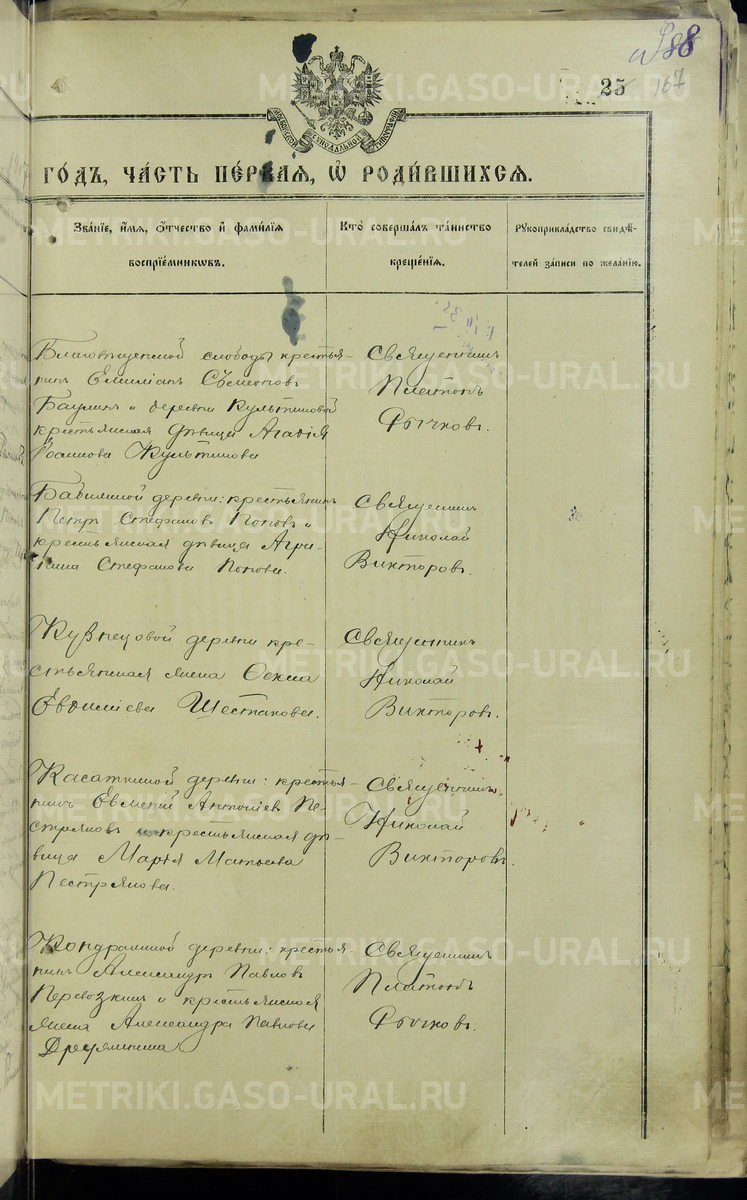 188
25
167
МОСКОВСКОЙ СѴНОДАЛЬНОЙ ТИПОГРАФІИ
ГО́ДЪ, ЧА́СТЬ ПЕ́РВАѦ, Ѽ РОДИ́ВШИХСѦ.
Зва́нїе, и҆́мѧ, ѻ҆́тчество и҆ фами́лїѧ
воспрїе́мникѡвъ.
Кто̀ соверша́лъ та́инство
креще́нїѧ.
Рꙋкоприкла́дство свидѣ́-
телей за́писи по жела́нїю.
Благовѣщенской слободы крестья-
нинъ Емиліанъ Сѵмеоновъ
Баулинъ и деревни Культиковой
крестьянская дѣвица Агафія
Іоаннова Культикова
Священникъ
Платонъ
Рычковъ.
Бабихиной деревни: крестьянинъ
Петръ Стефановъ Поповъ и
крестьянская дѣвица Агри-
пина Стефанова Попова.
Священникъ
Николай
Викторовъ.
Кузнецовой деревни кре-
стьянская жена Ѳекла
Евѳиміева Шестакова.
Священникъ
Николай
Викторовъ.
Касаткиной деревни: крестья-
нинъ Евменій Антоніевъ Пе-
стряковъ и крестьянская дѣ-
вица Марія Матѳеева
Пестрякова.
Священникъ
Николай
Викторовъ.
Кондрашиной деревни: крестья-
нинъ Александръ Павловъ
Перевозкинъ и крестьянская
жена Александра Павлова
Дресмянина
Священникъ
Платонъ
Рычковъ.
METRIKI.GASO-URAL.RU